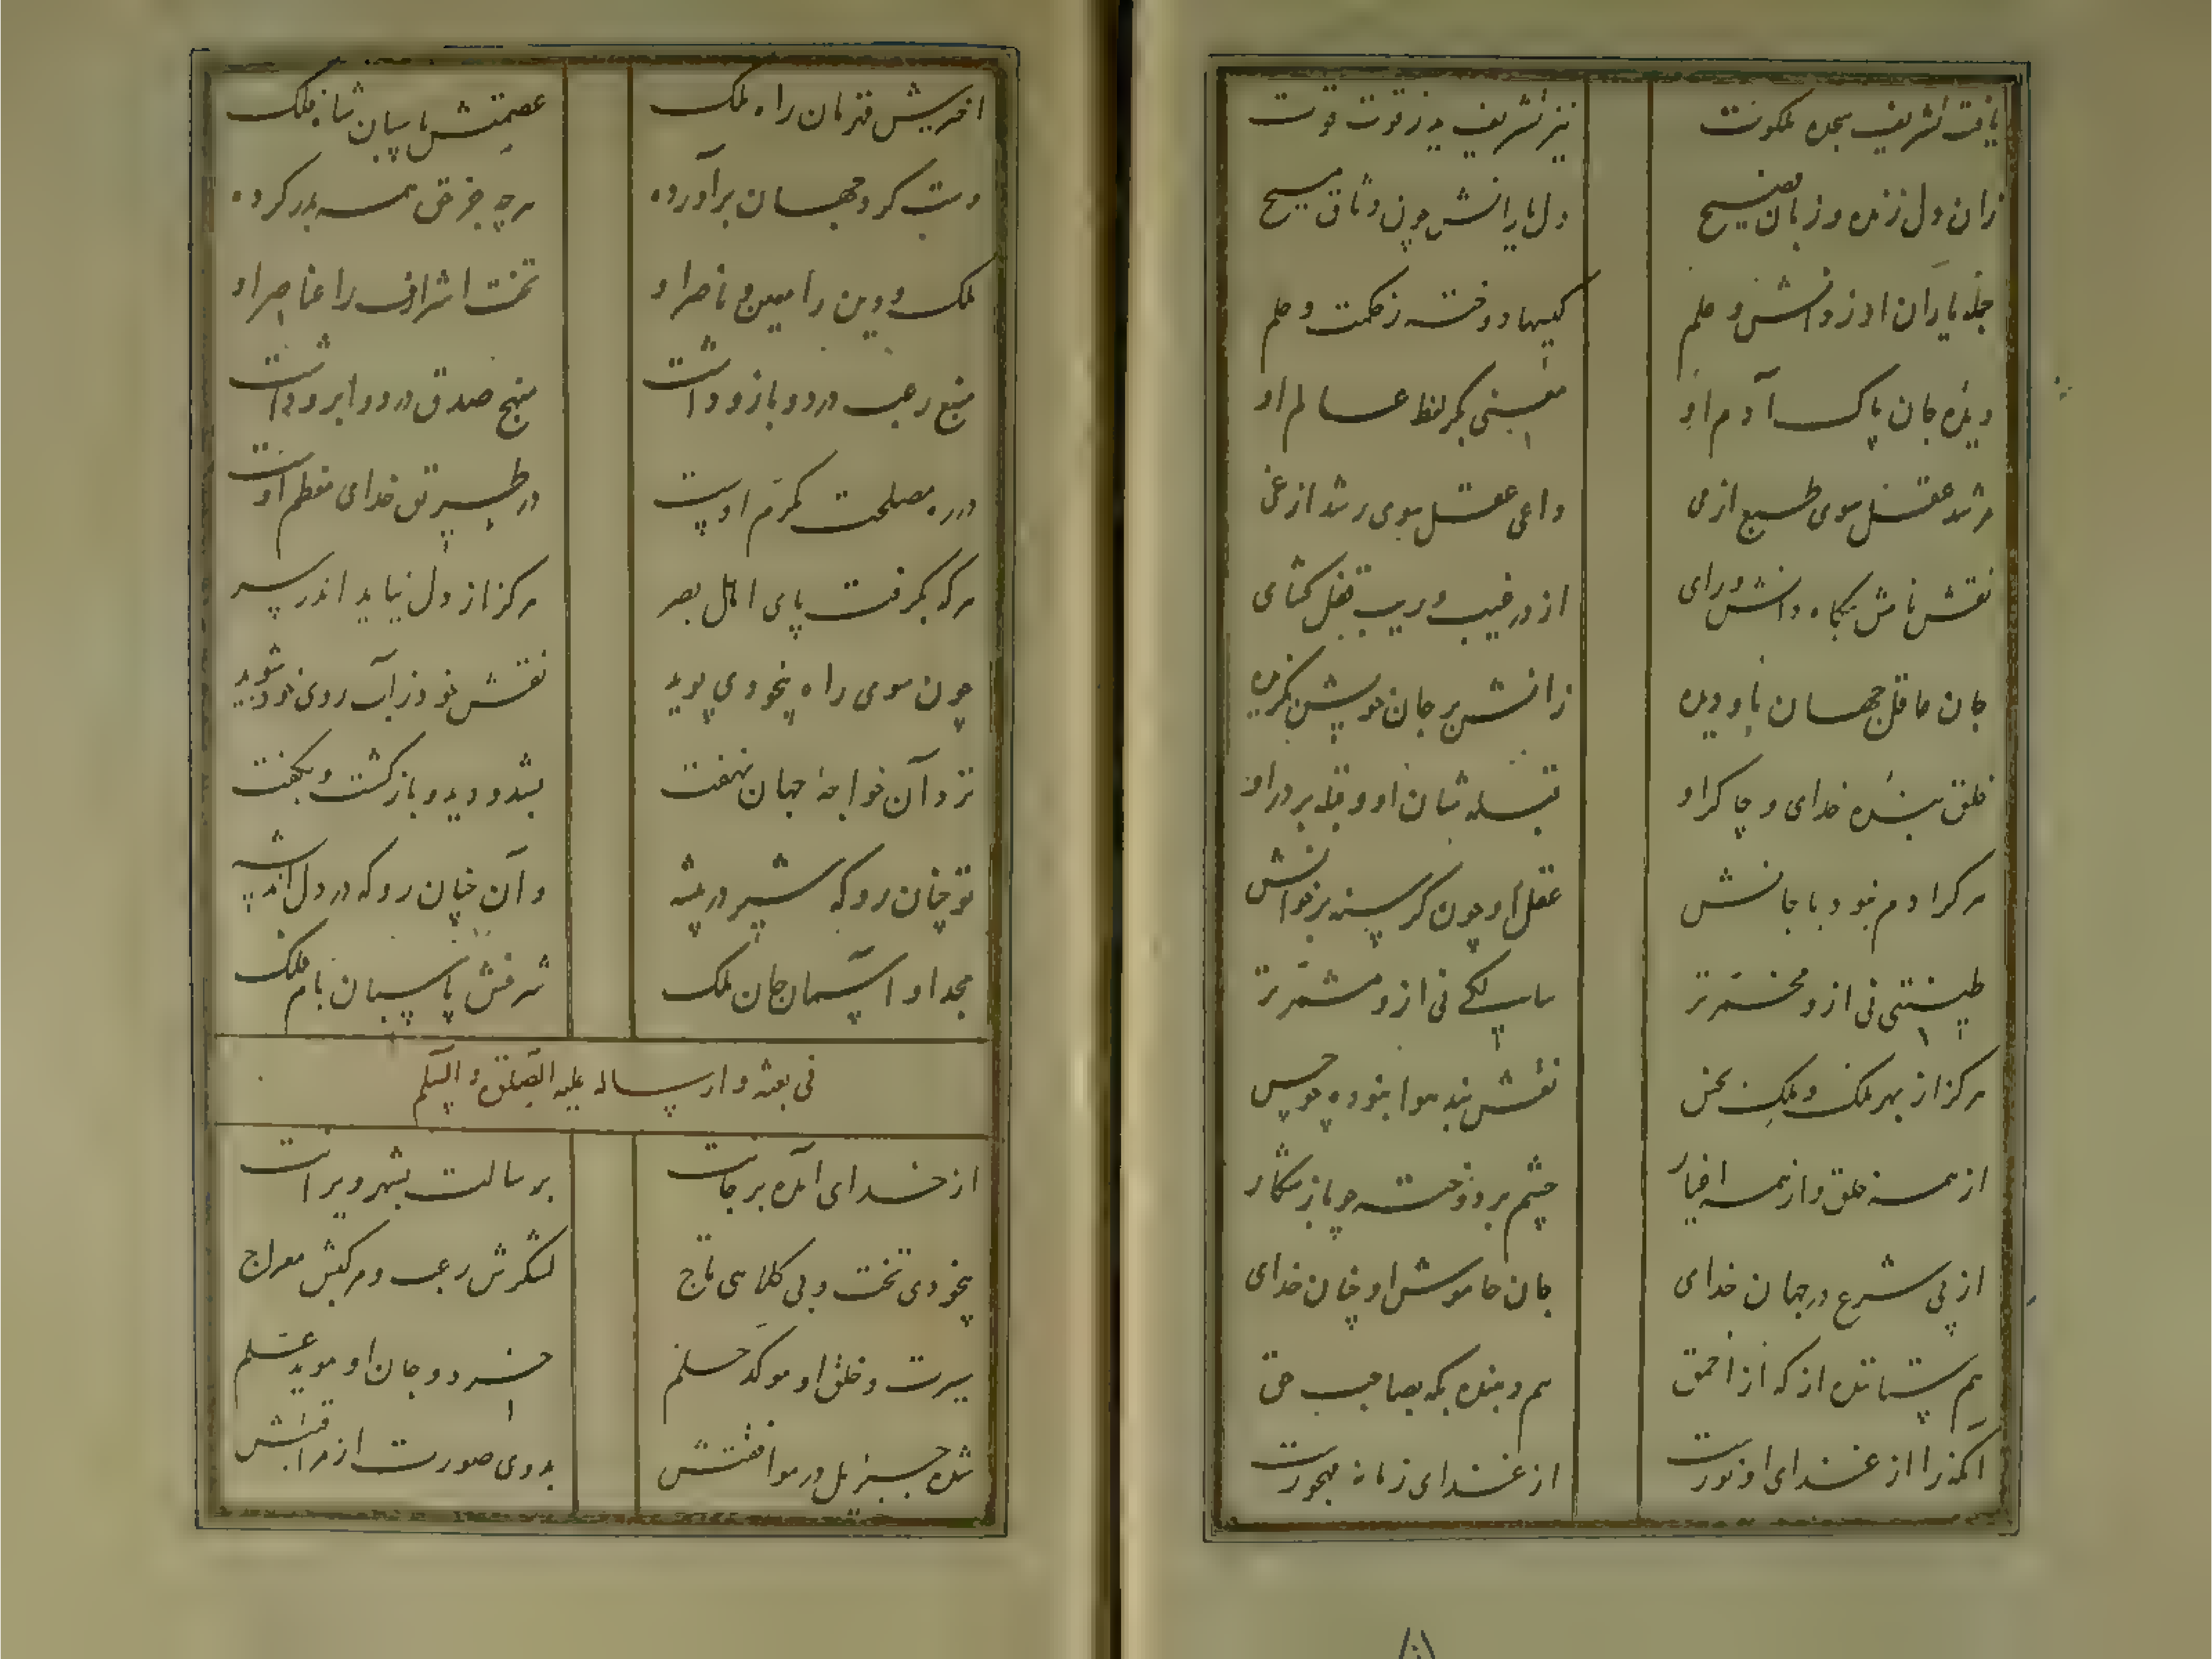 یافت تشریف سجده ملکوت نیز تشریف در ز قوت قوت
زان دل زنده و زبان فصیح دل یارانش چون وثاق مسیح
جمله یاران او ز دانش و حلم کیسها دوخته ز حکمت و علم
ویژه جان پاک آدم او معنی بکر لفظ عالم او
مرشد عقل سوی طبع از می داعی عقل سوی رشد از غی
نقش نامش بگاه دانش و رای از در غیب و ریب قفل گشای
جان عاقل جهان باو دیده زانش بر جان خویش بگزیده
خلق بنده خدای و چاکر او قبله شان او و قبله بر در او
هر که آدم نبود با جانش عقل او چون گرسنه بر خوانش
طینتی نی ازو مخمرتر سالکی نی ازو مشمرتر
هرگز از بهر ملک و ملک نحس نقش بند هوا نبوده چو حس
از همه خلق و از همه اخیار چشم بر دوخته چو باز شکار
از پی شرع در جهان خدای جان خاموش او چنان خدای
هم ستاننده از که از احمق هم دهنده بکه بصاحب حق
آنکه را از غذای او نورست از غذای زمانه مهجورست
آفرینش قهرمان راه ملک عصمتش پاسبان شاه ملک
دست کرد جهان برآورده هرچه جز حق همه بدر کرده
ملک و دین را معین و ناصر او تخت اشراف را عناصر او
منبع رعب در دو بازو داشت منهج صدق در دو ابرو داشت
در ره مصلحت مکرم اوست در طریق خدای معظم اوست
هر که بگرفت پای اهل بصر هرگز از دل نیاید اندر سر
چون سوی راه بیخودی پوید نقش خود ز آب روی خود شوید
نزد آن خواجه جهان نهفت بشد و دید و بازگشت و بگفت
تو چنان رو که شیر در بیشه و آن چنان رو که در دل اندیشه
مجد او آسمان جان ملک شرفش پاسبان بام فلک
فی بعثه و ارساله علیه الصلوة و السلم
از خدای آمده بر جانت برسالت بشهر ویرانت
بیخودی تخت و بی کلاهی تاج لشگرش رعب و مرکبش معراج
سیرت و خلق او موکد حلم خرد و جان او موید علم
شده جبریل در موافقتش بدوی صورت از مراقبتش